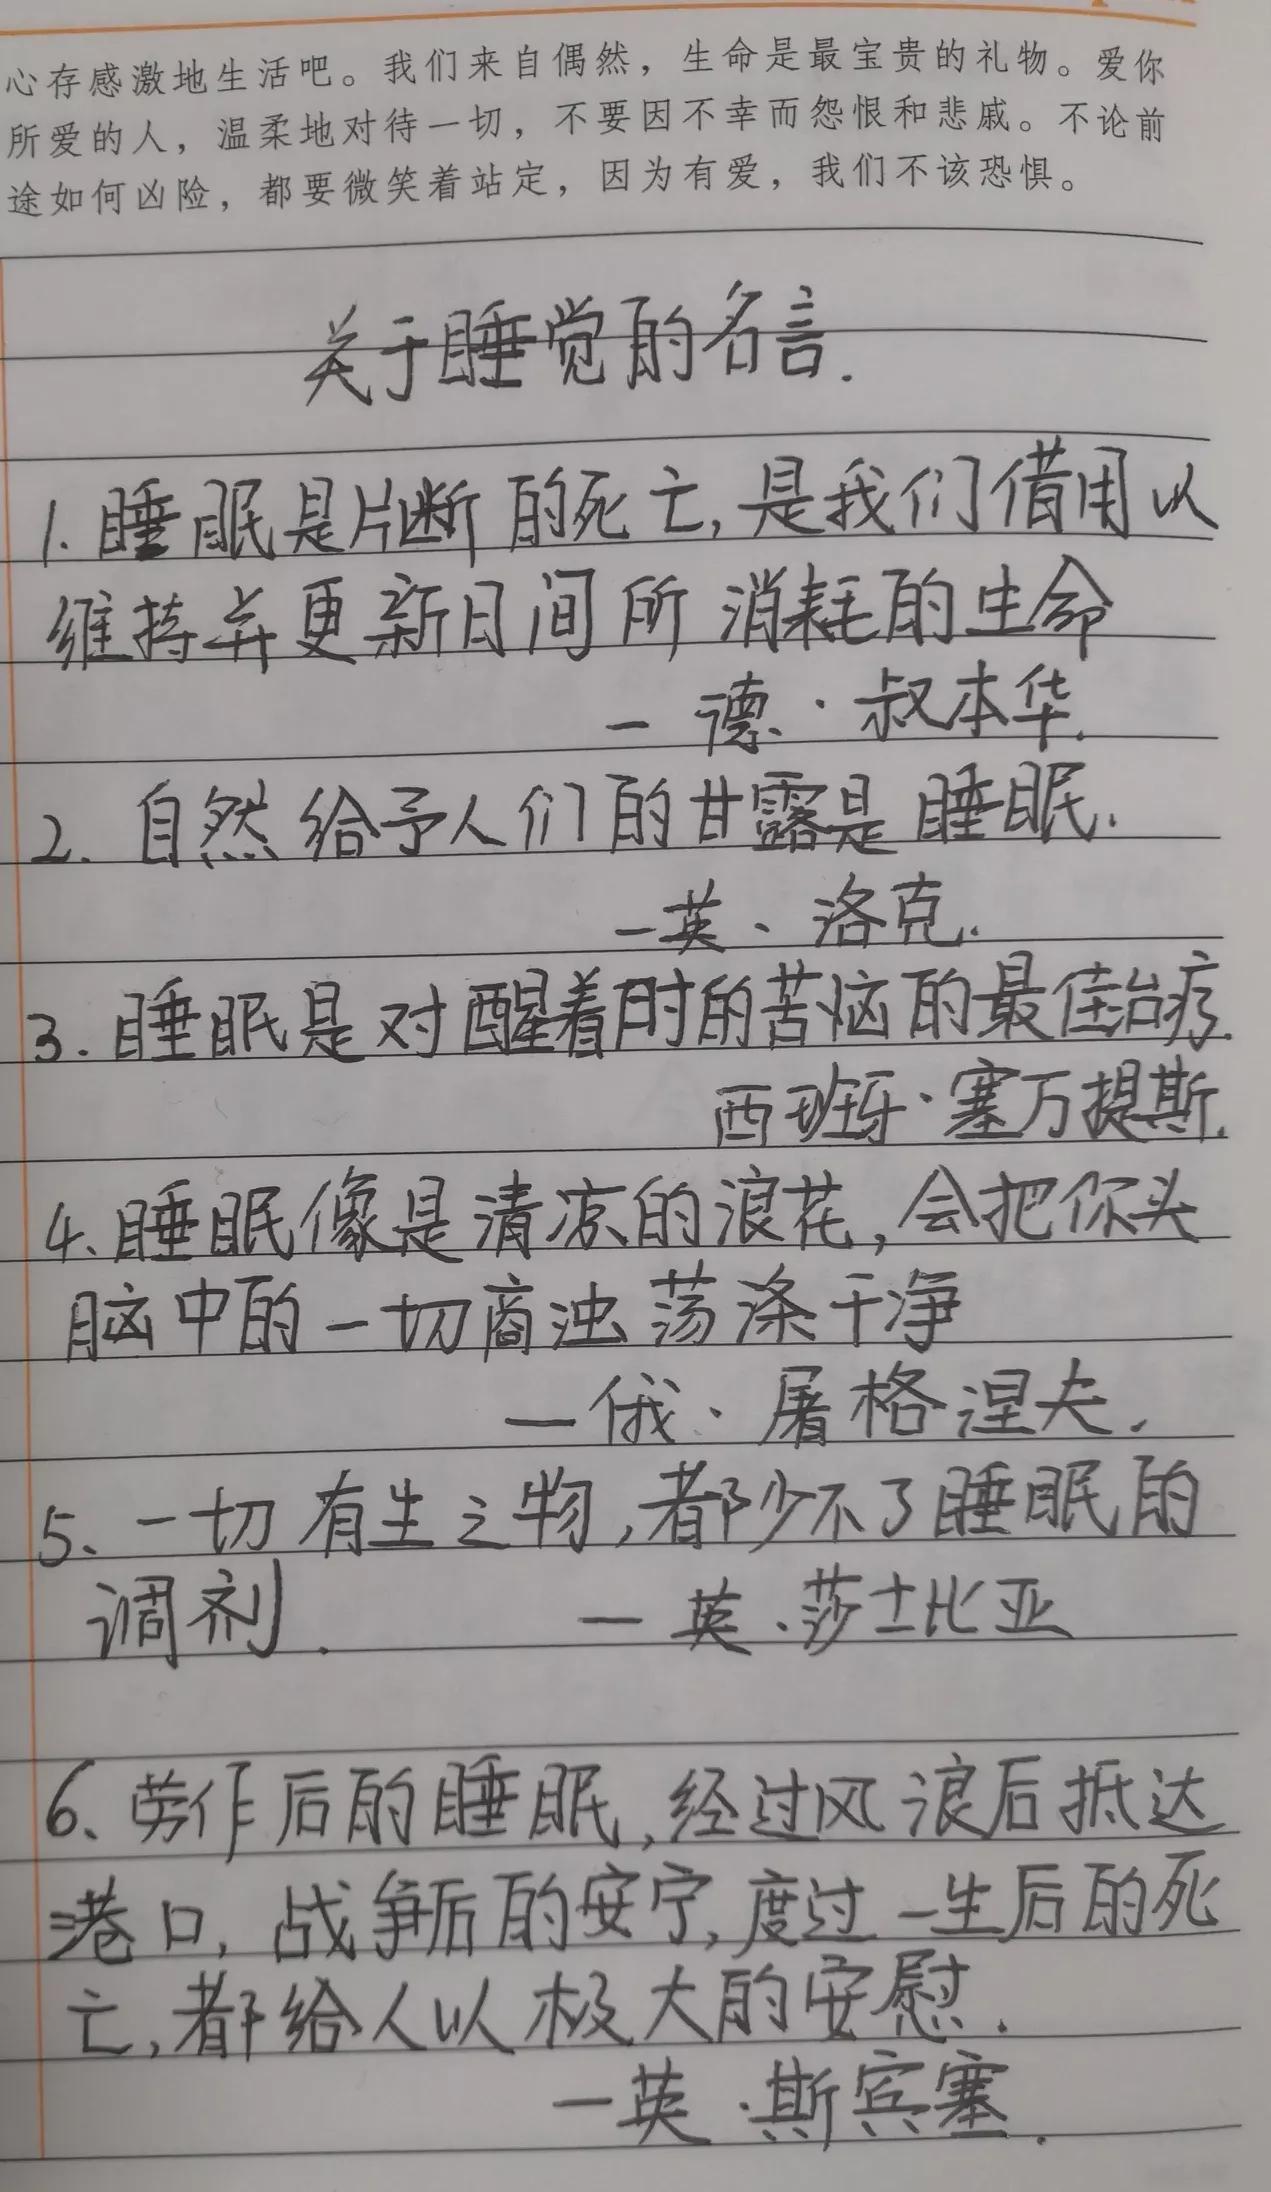 心存感激地生活吧。我们来自偶然，生命是最宝贵的礼物。爱你
所爱的人，温柔地对待一切，不要因不幸而怨恨和悲戚。不论前
途如何凶险，都要微笑着站定，因为有爱，我们不该恐惧。
关于睡觉的名言.
1.睡眠是片断的死亡,是我们借用以
维持并更新日间所消耗的生命
一德·叔本华.
2.自然给予人们的甘露是睡眠.
一英、洛克.
3.睡眠是对醒着时的苦恼的最佳治疗.
西班牙·塞万提斯.
4、睡眠像是清凉的浪花,会把你头
脑中的一切商浊荡涤干净
一俄、屠格涅夫.
5、一切有生之物,都少不了睡眠的
调剂. 一英.莎士比亚
6、劳作后的睡眠,经过风浪后抵达
港口,战争后的安宁,度过一生后的死
亡,都给人以极大的安慰.
一英.斯宾塞.